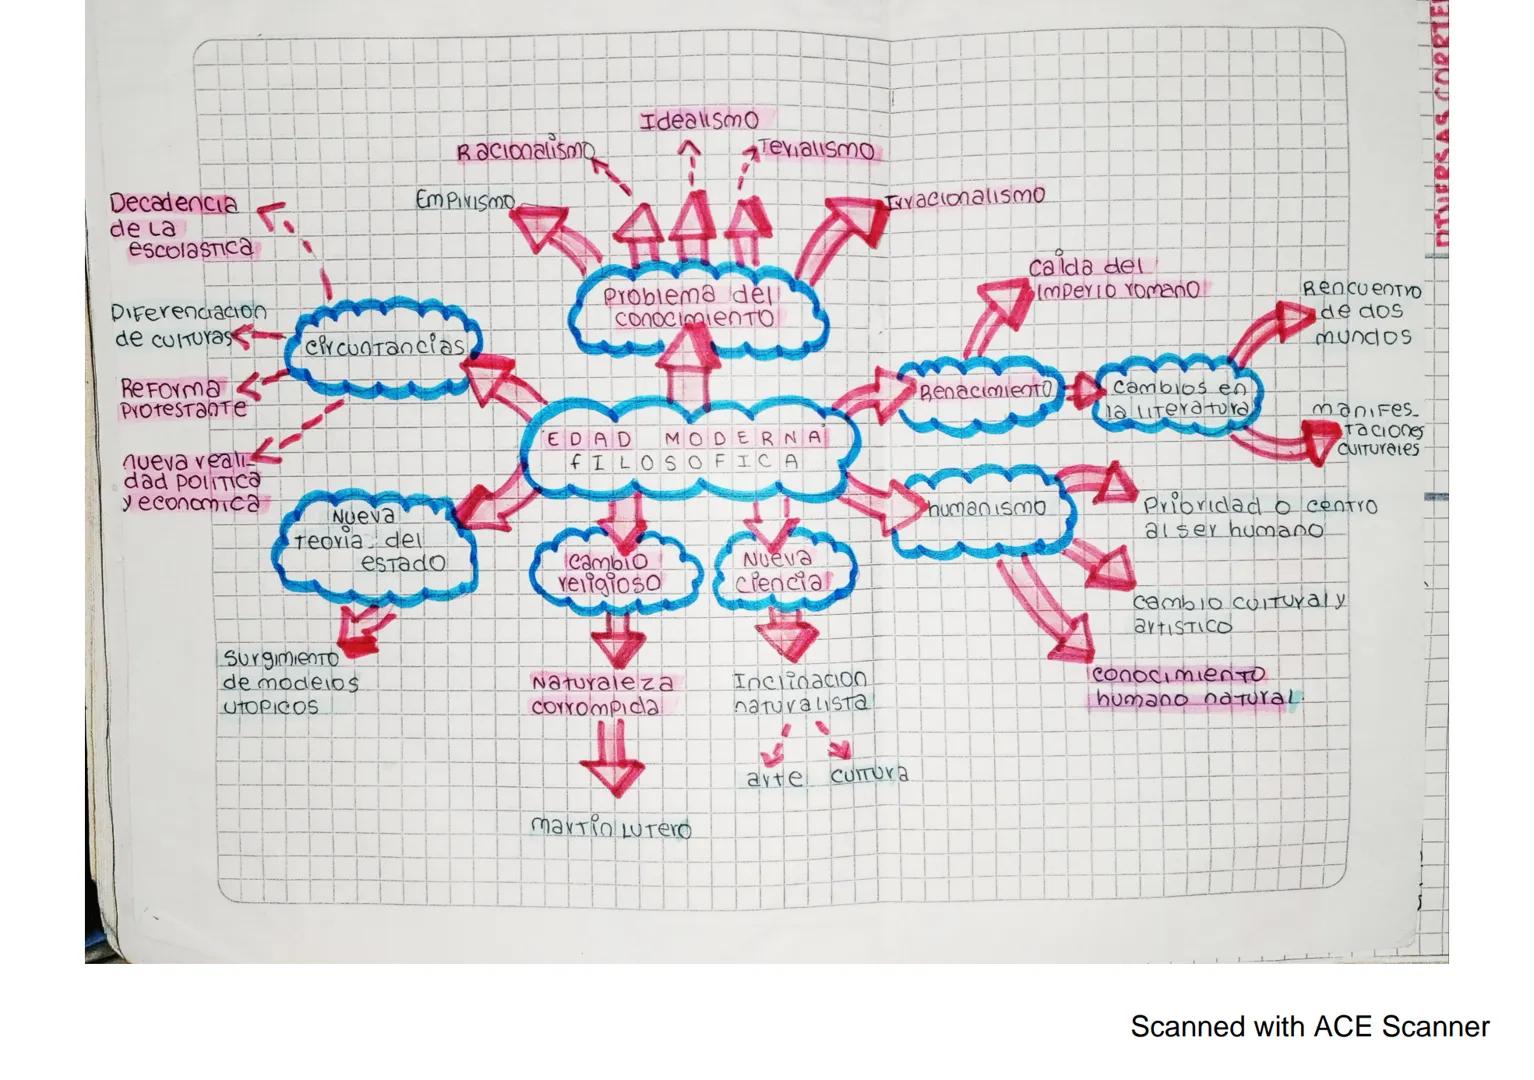 Idealismo
Racionalismo
Terialismo
Empirismo
Irracionalismo
Decadencia
de La
escolastica
Problema del
conocimiento
caida del
imperio romano
Diferenciacion
de culturas
circuntancias
Reencuentro
de dos
mundos
Reforma
Protestante
Renacimiento
cambios en
la literatura
manifes_
taciones
culturales
EDAD MODERNA
fILOSOFICA
nueva reali-
dad politica
y economica
Nueva
teoria del
estado
humanismo
Prioridad o centro
al ser humano
cambio
religioso
Nueva
ciencia
cambio cultural y
artistico
Surgimiento
de modelos
utopicos
Naturaleza
corrompida
Inclinacion
naturalista
conocimiento
humano natural.
arte cultura
martin Lutero
Scanned with ACE Scanner